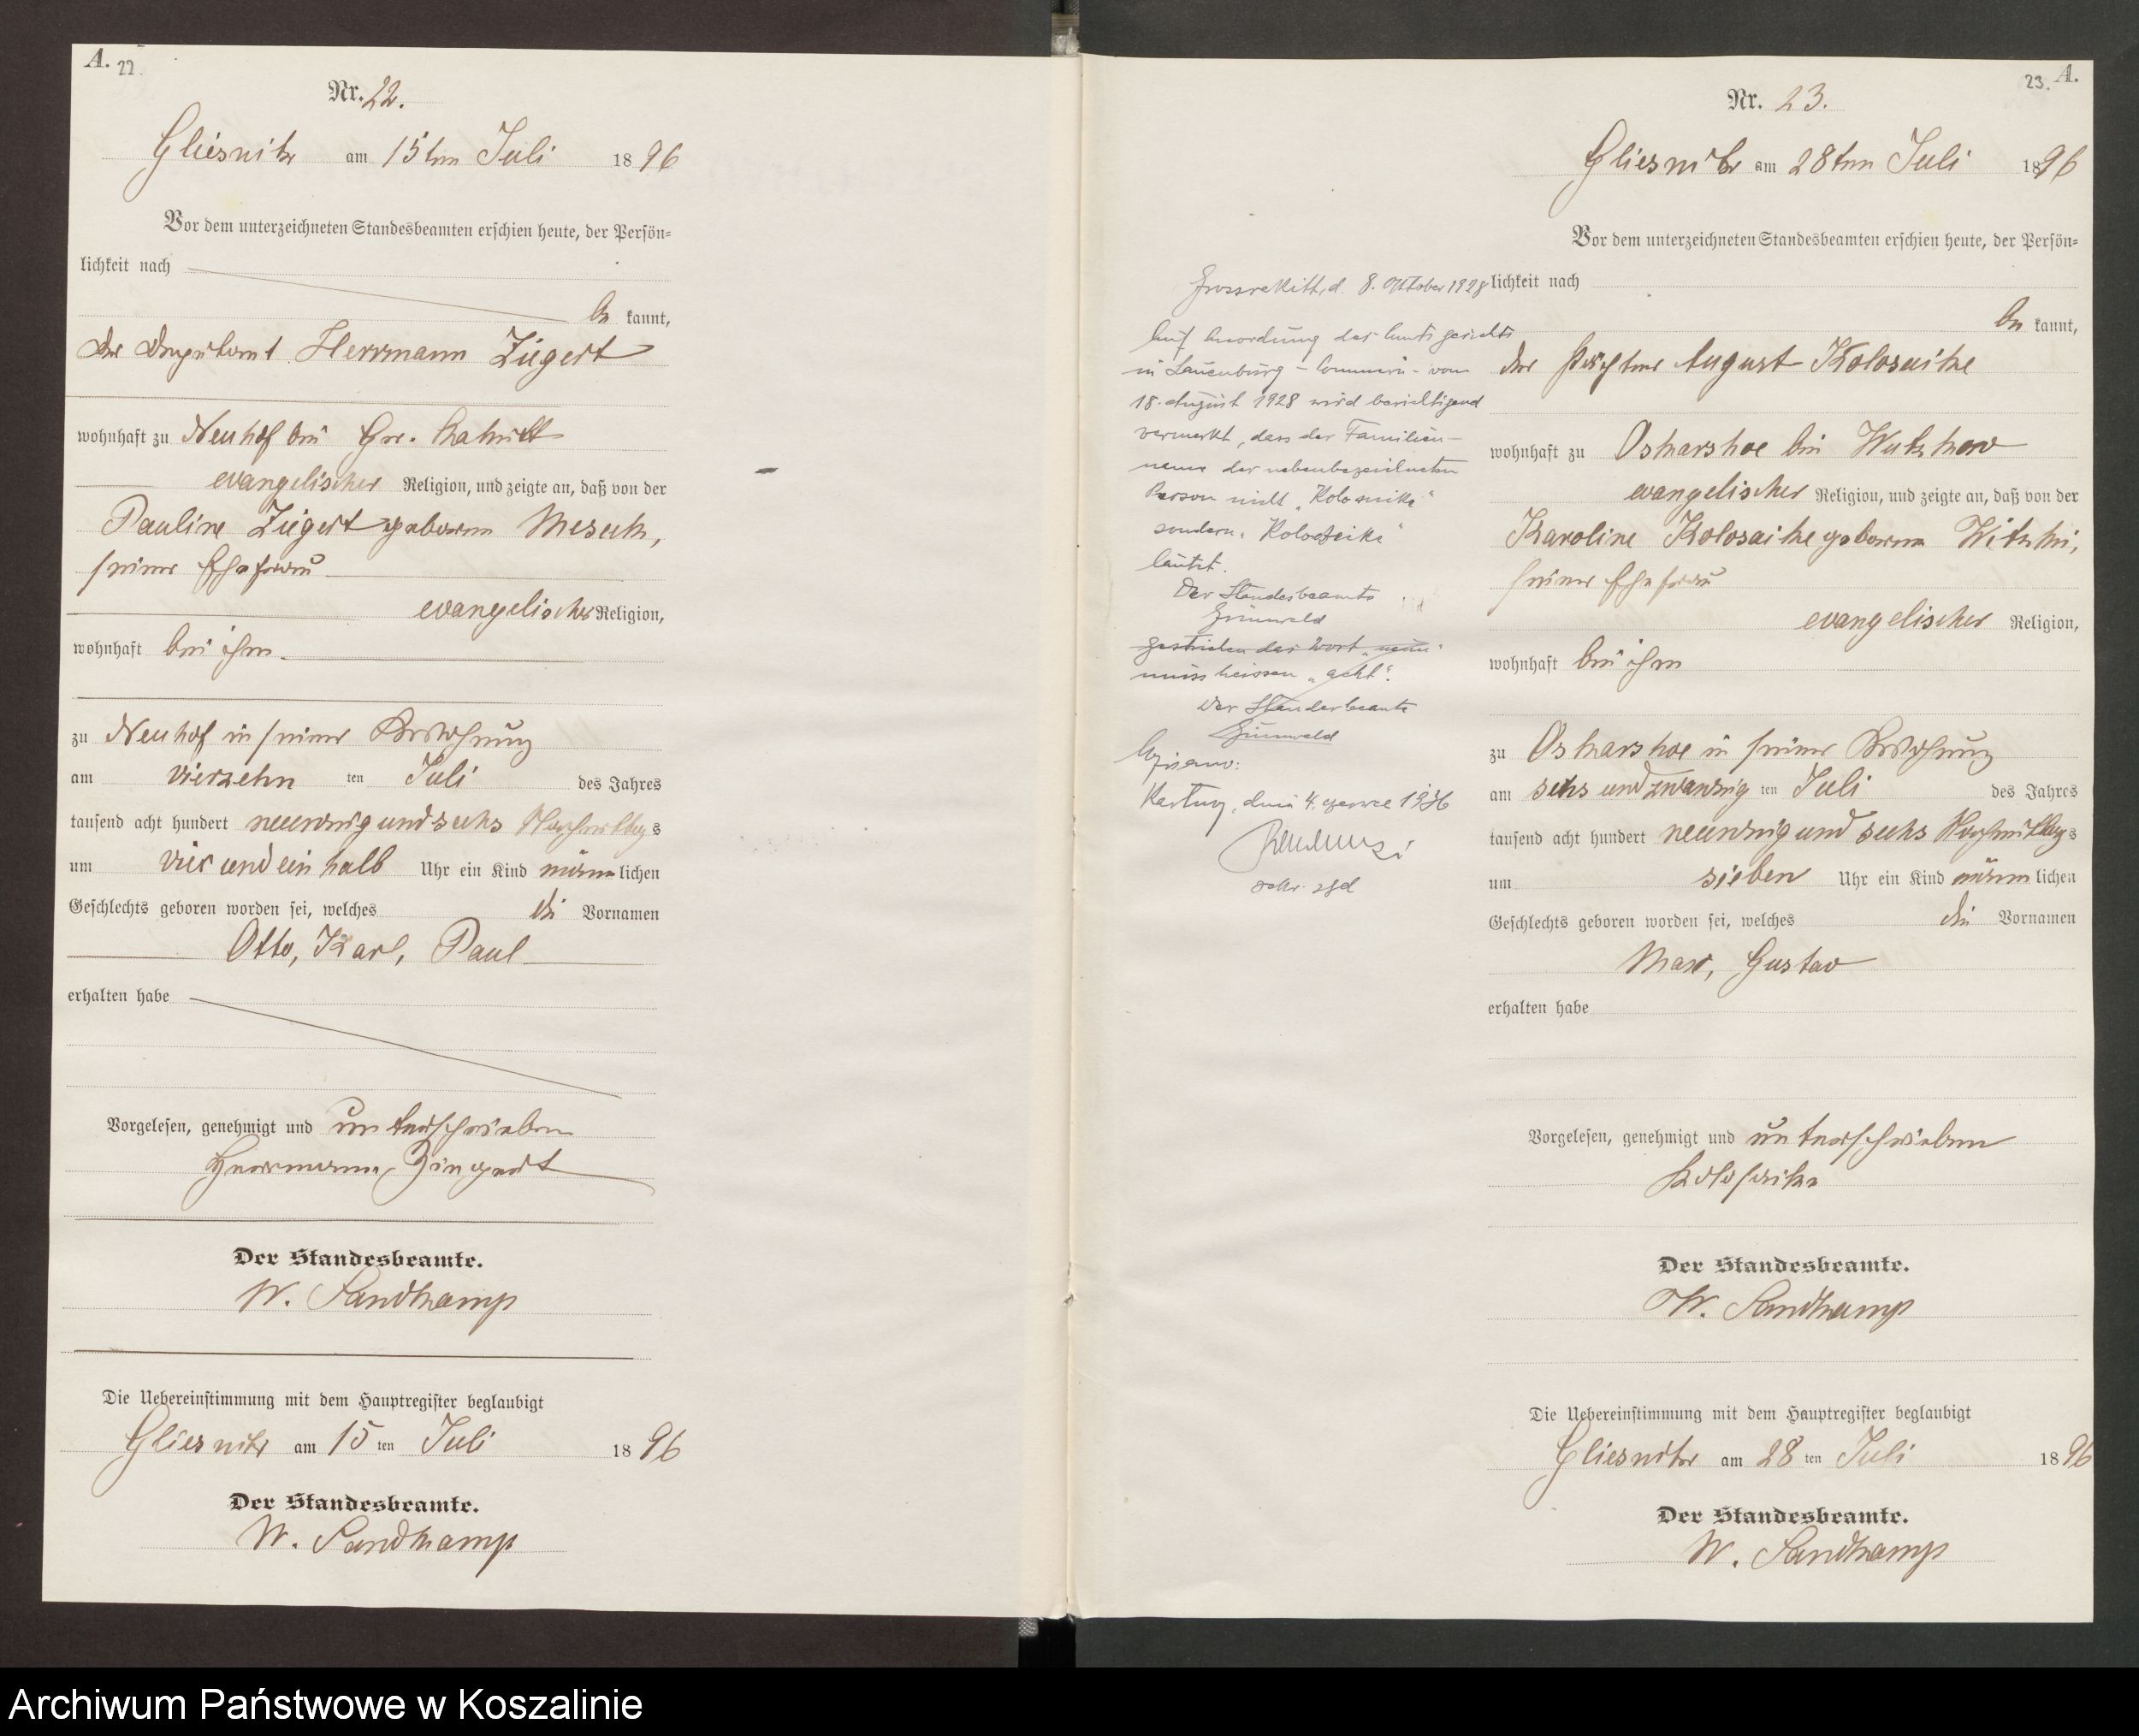 A. 22.
Nr. 22.
Gliesnitz am 15ten Juli 1896
Vor dem unterzeichneten Standesbeamten erschien heute, der Persön-
lichkeit nach
be kannt,
der Deputant Herrmann Ziegert
wohnhaft zu Neuhof bei Gr. Rakitt
evangelischer Religion, und zeigte an, daß von der
Pauline Ziegert geborene Meseck,
seiner Ehefrau
evangelischer Religion,
wohnhaft bei ihm
zu Neuhof in seiner Behausung
am vierzehn ten Juli des Jahres
tausend acht hundert neunzig und sechs Nachmittags
um vier und ein halb Uhr ein Kind männlichen
Geschlechts geboren worden sei, welches die Vornamen
Otto, Karl, Paul
erhalten habe
Vorgelesen, genehmigt und unterschrieben
Herrmann Ziegert
Der Standesbeamte.
W. Sandkamp
Die Uebereinstimmung mit dem Hauptregister beglaubigt
Gliesnitz am 15 ten Juli 1896
Der Standesbeamte.
W. Sandkamp
23. A.
Nr. 23.
Gliesnitz am 28ten Juli 1896
Vor dem unterzeichneten Standesbeamten erschien heute, der Persön-
lichkeit nach
be kannt,
der Pächter August Kolosaike
wohnhaft zu Oskarshoe bei Wutzkow
evangelischer Religion, und zeigte an, daß von der
Karoline Kolosaike geborene Witzki,
seiner Ehefrau
evangelischer Religion,
wohnhaft bei ihm
zu Oskarshoe in seiner Behausung
am sechs und zwanzig ten Juli des Jahres
tausend acht hundert neunzig und sechs Nachmittags
um sieben Uhr ein Kind männlichen
Geschlechts geboren worden sei, welches die Vornamen
Max, Gustav
erhalten habe
Vorgelesen, genehmigt und unterschrieben
Kolosaike
Der Standesbeamte.
W. Sandkamp
Die Uebereinstimmung mit dem Hauptregister beglaubigt
Gliesnitz am 28 ten Juli 1896
Der Standesbeamte.
W. Sandkamp
Grossrakitt, d. 8. Oktober 1928
Auf Anordnung des Amtsgerichts
in Lauenburg - Pommern - vom
18. August 1928 wird berichtigend
vermerkt, dass der Familien-
name der nebenbezeichneten
Person nicht „Kolosaike"
sondern „Kolodzeike"
lautet.
Der Standesbeamte
Grünwald
gestrichen das Wort „neun"
muss heissen „acht".
Der Standesbeamte
Grünwald
Kartuzy, dnia 4. czerwca 1936
Archiwum Państwowe w Koszalinie